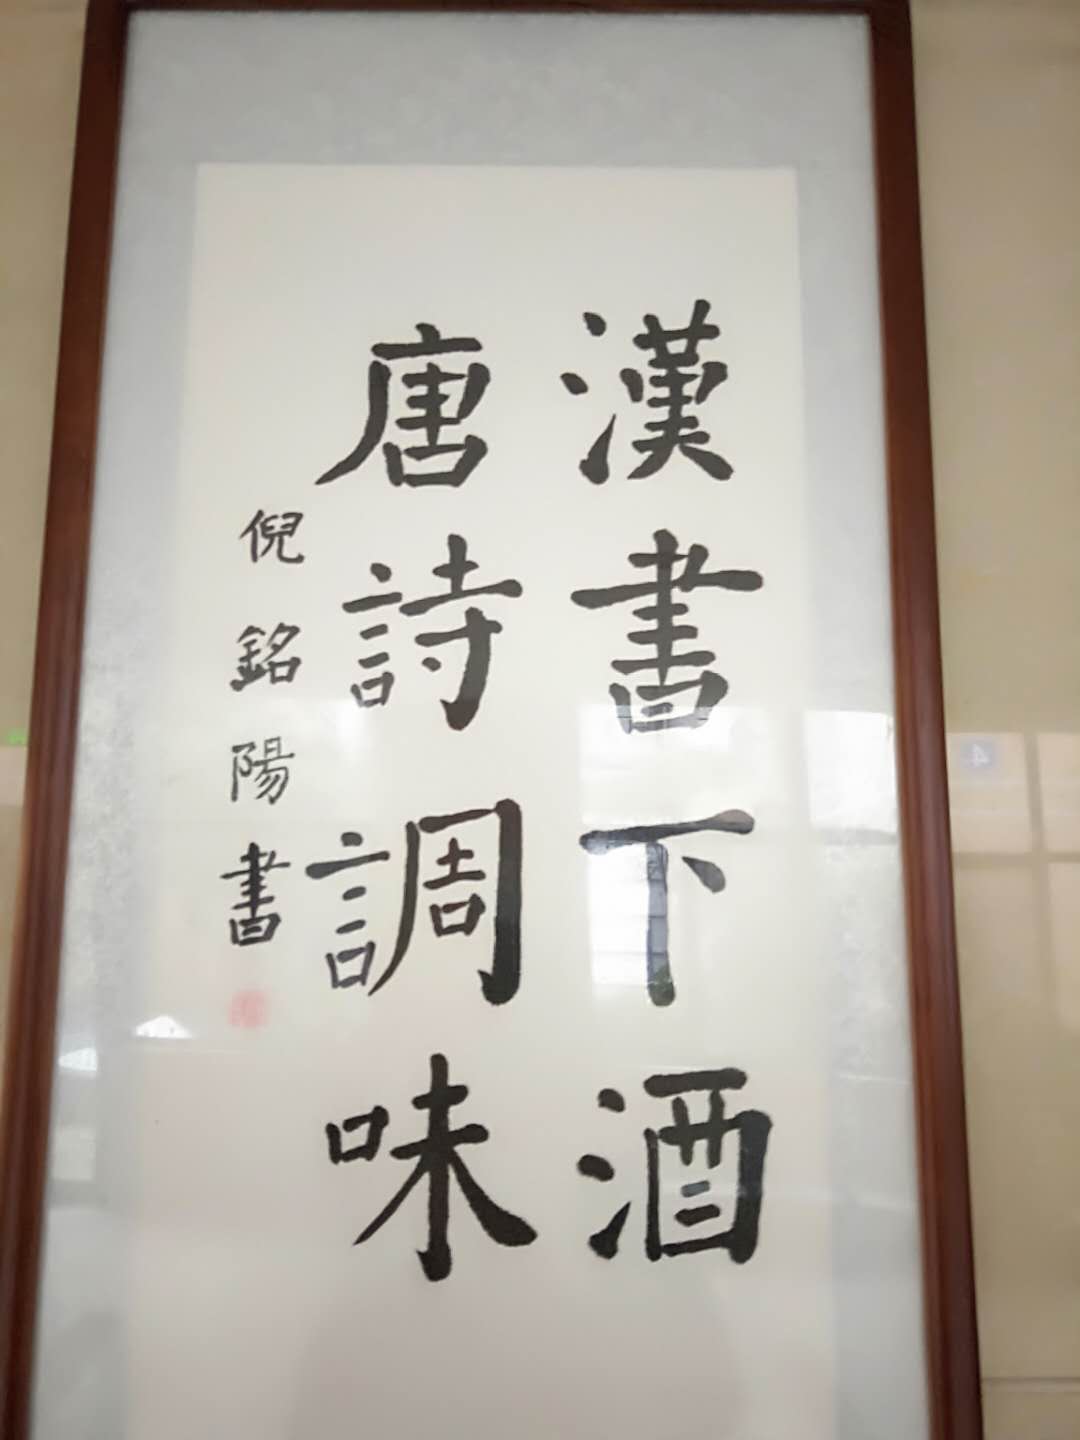 漢書下酒
唐詩調味
倪銘陽書